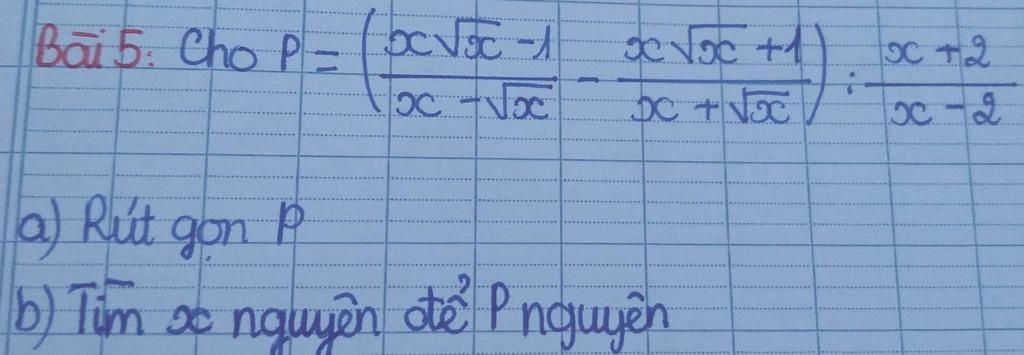 Bài 5: Cho P = (x√x - 1 / x - √x - x√x + 1 / x + √x) : x + 2 / x - 2
a) Rút gọn P
b) Tìm x nguyên để P nguyên